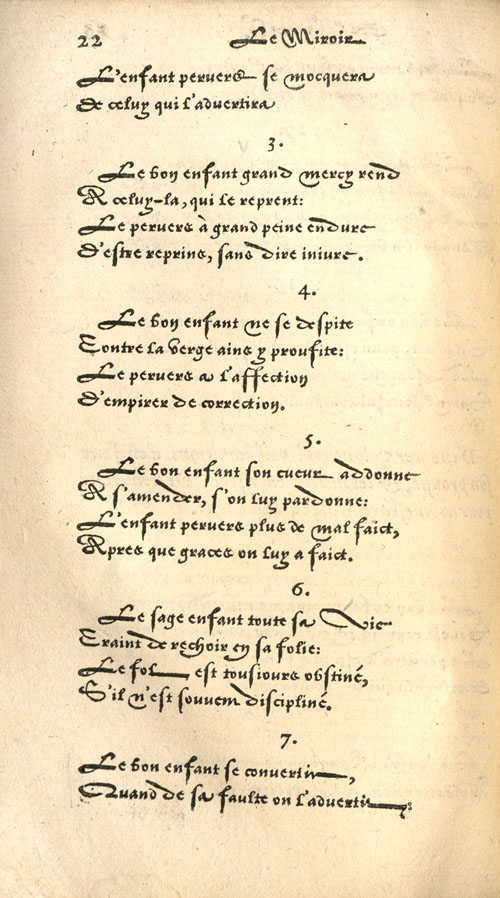 22 Le Miroir
L'enfant pervers se mocquera
De celuy qui l'advertira
3.
Le bon enfant grand mercy rend
A celuy-la, qui le reprent:
Le pervers à grand peine endure
D'estre reprins, sans dire iniure.
4.
Le bon enfant ne se despite
Contre la verge ains y proufite:
Le pervers a l'affection
D'empirer de correction.
5.
Le bon enfant son cueur addonne
A s'amender, s'on luy pardonne:
L'enfant pervers plus de mal faict,
Apres que graces on luy a faict.
6.
Le sage enfant toute sa vie
Craint de rechoir en sa folie:
Le fol est tousiours obstiné,
S'il n'est souvent discipliné.
7.
Le bon enfant se convertit,
Quand de sa faulte on l'advertit: